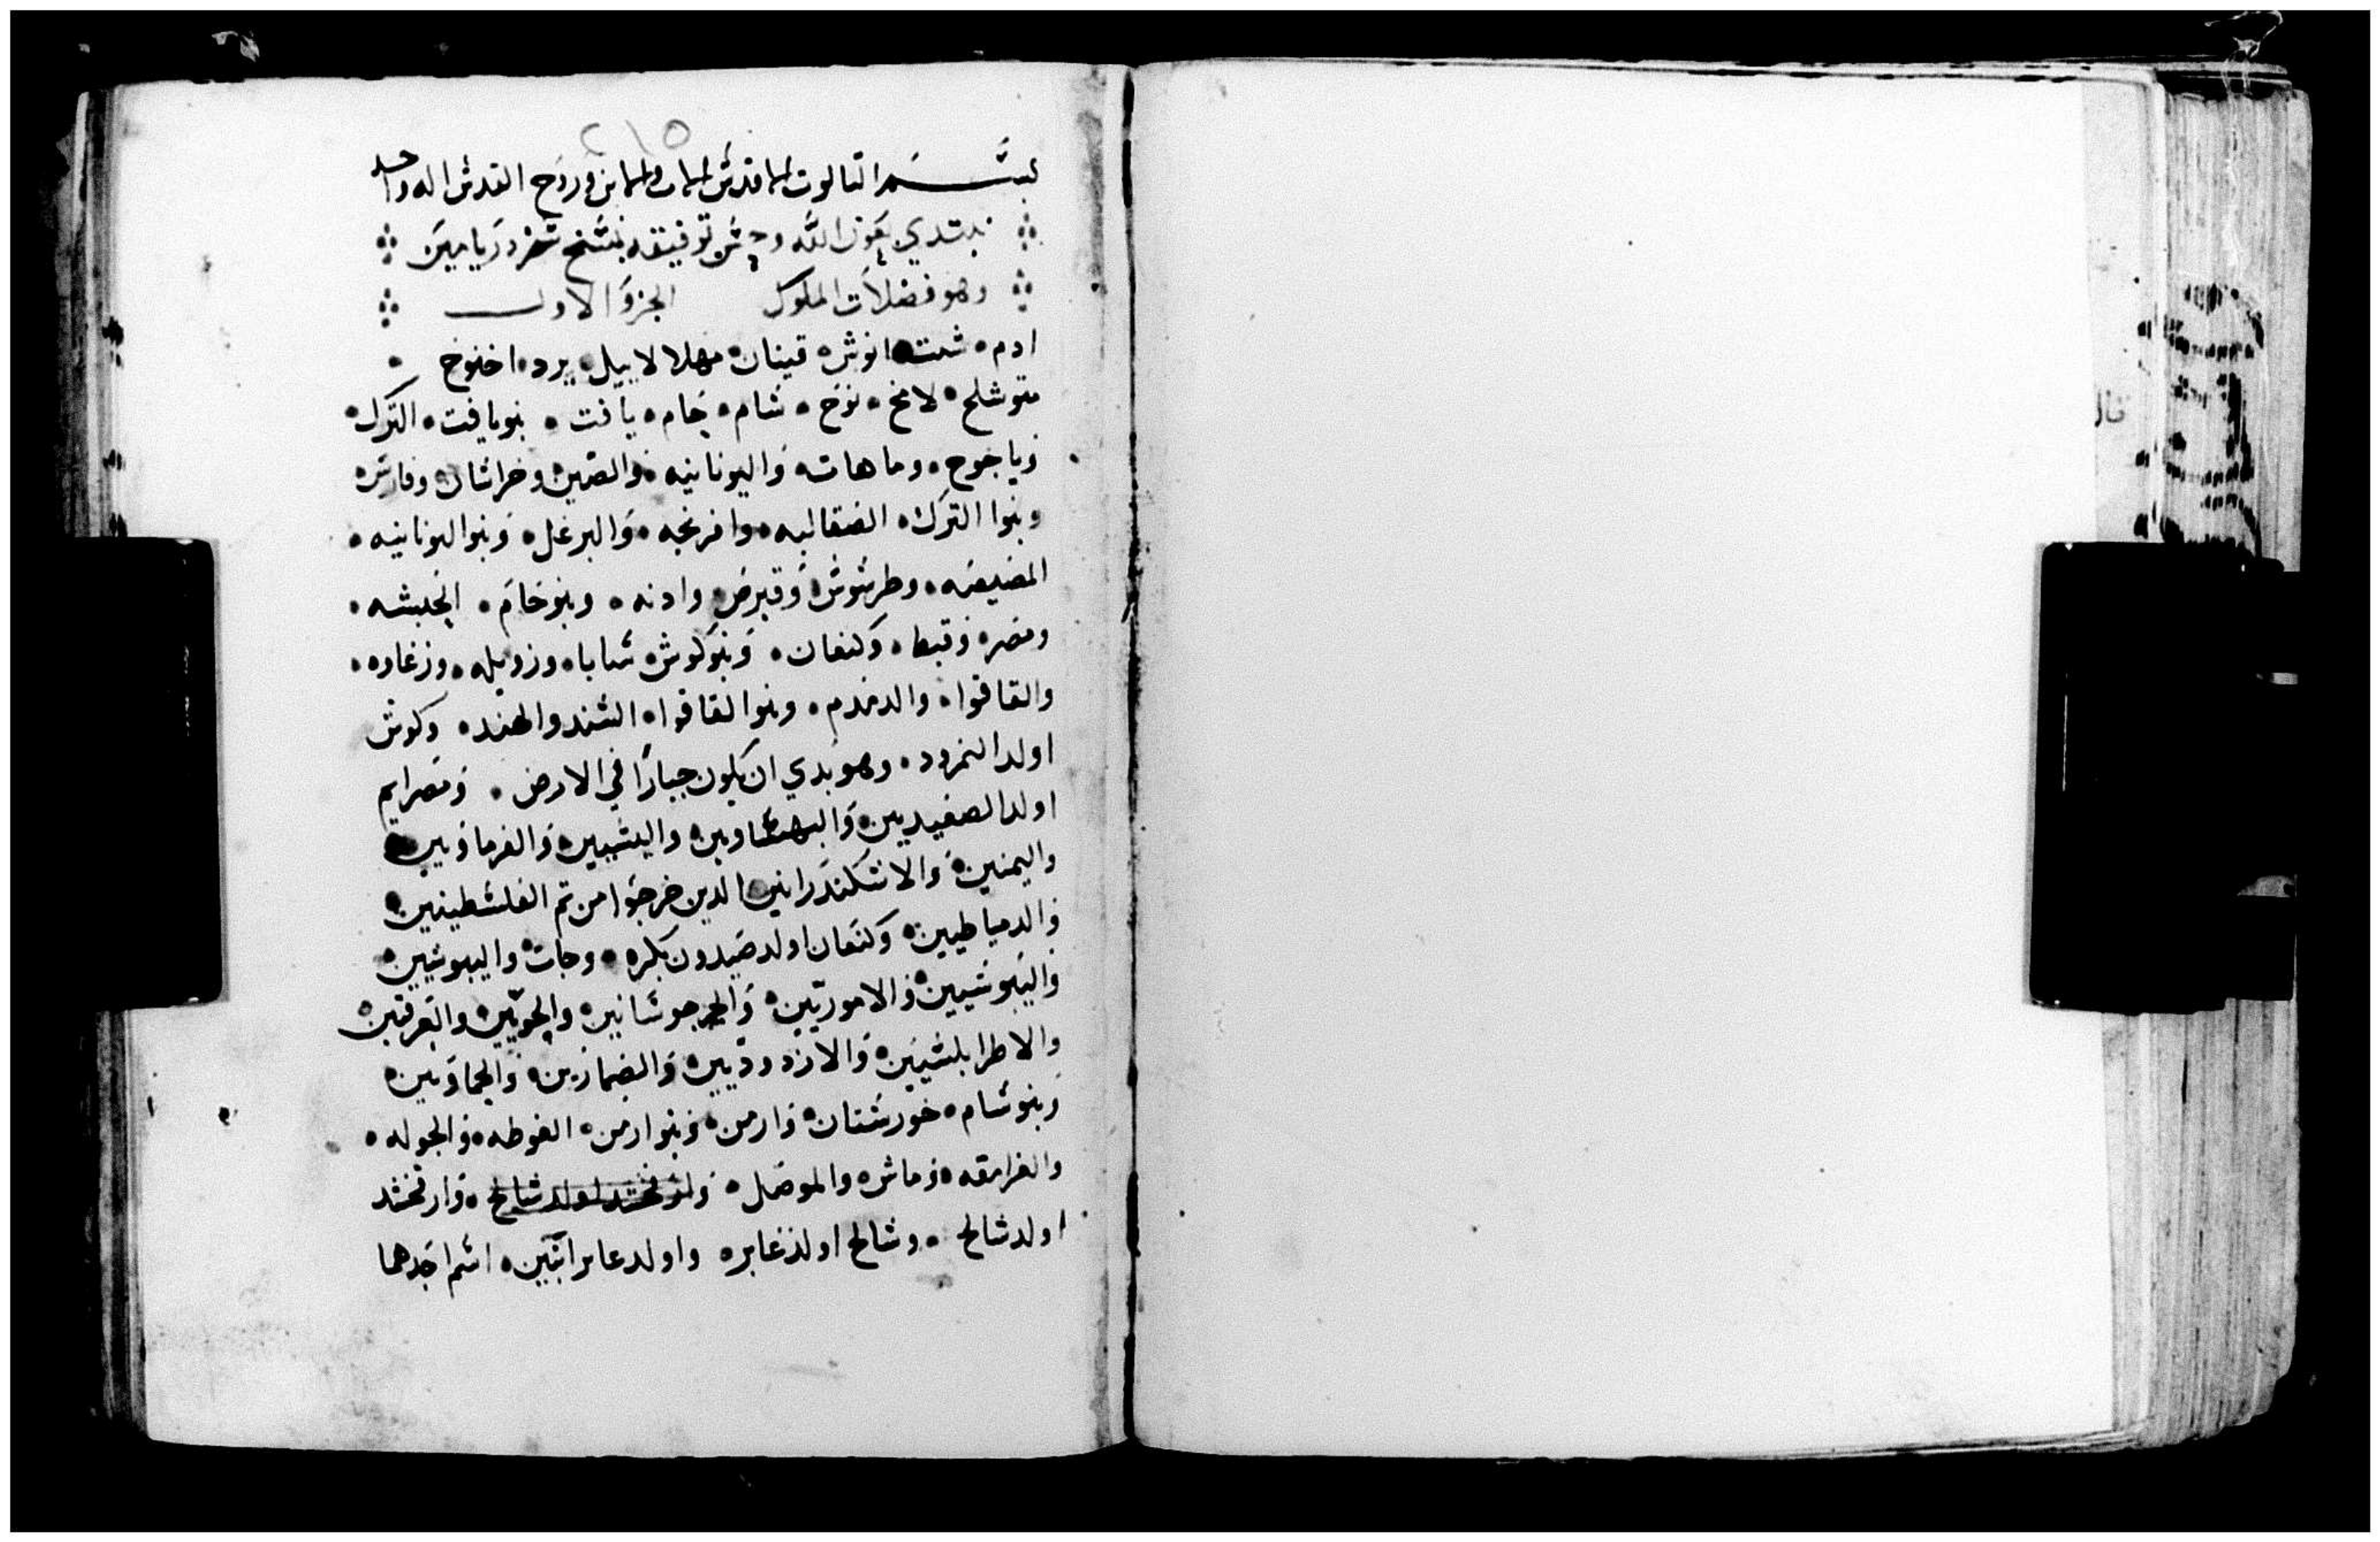 ٢١٥
بسم التالوت الاقدس الاب والابن وروح القدس اله واحد
نبتدي بعون الله وحسن توفيقه بنسخ سفر دبريامين
وهو فضلات الملوك الجزو الاول
ادم شت انوش قينان مهلالاييل يرد اخنوخ
متوشلح لامخ نوح شام حام يافت بنو يافت الترك
وياجوج وماهات واليونانيه والصين وخراسان وفارس
وبنوا الترك الصقالبه وافرنجه والبرغل وبنو اليونانيه
المصيصه وطرسوس وقبرص وادنه وبنو حام الحبشه
ومصر وقبط وكنعان وبنو كوش سابا وزويله وزغاوه
والقاقوا والدمدم وبنوا القاقوا السند والهند وكوش
اولد النمرود وهو بدي ان يكون جبارا في الارض ومصرايم
اولد الصعيديين والبهنساويين والفرماويين
واليمنين والاسكندرانين الدين خرجوا من تم الفلسطينيين
والدمياطيين وكنعان اولد صيدون بكره وحات واليبوسيين
واليبوسيين والاموريين والجرجوسانيين والحويين والعرقيين
والاطرابلسيين والازدوديين والضمارين والحماويين
وبنو شام خورستان وارمن وبنو ارمن الغوطه والجوله
والغرامقه وماش والموصل وارفخشد اولد شالح وارفخشد
اولد شالح وشالح اولد عابر واولد عابر اتنين اسم احدهما
قال